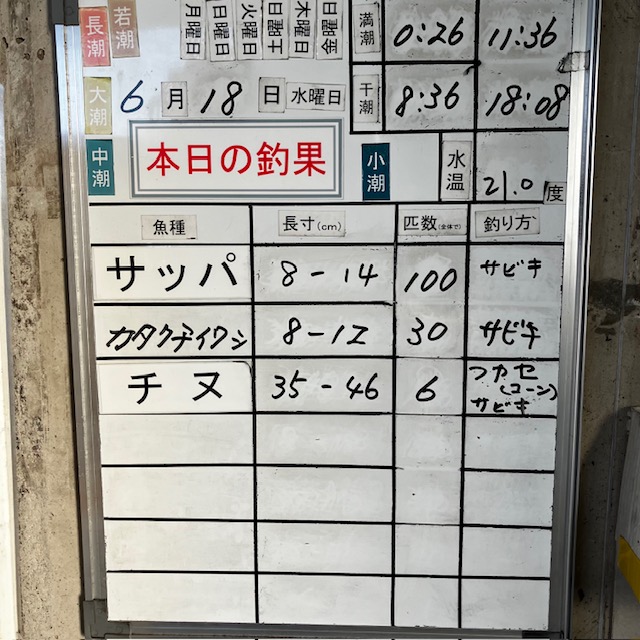 長潮 若潮 月曜日 日曜日 火曜日 土曜日 木曜日 金曜日 満潮 0:26 11:36
大潮 6月18日 水曜日 干潮 8:36 18:08
中潮 本日の釣果 小潮 水温 21.0度
魚種 長寸(cm) 匹数(全体で) 釣り方
サッパ 8-14 100 サビキ
カタクチイワシ 8-12 30 サビキ
チヌ 35-46 6 フカセ
(コーン)
サビキ